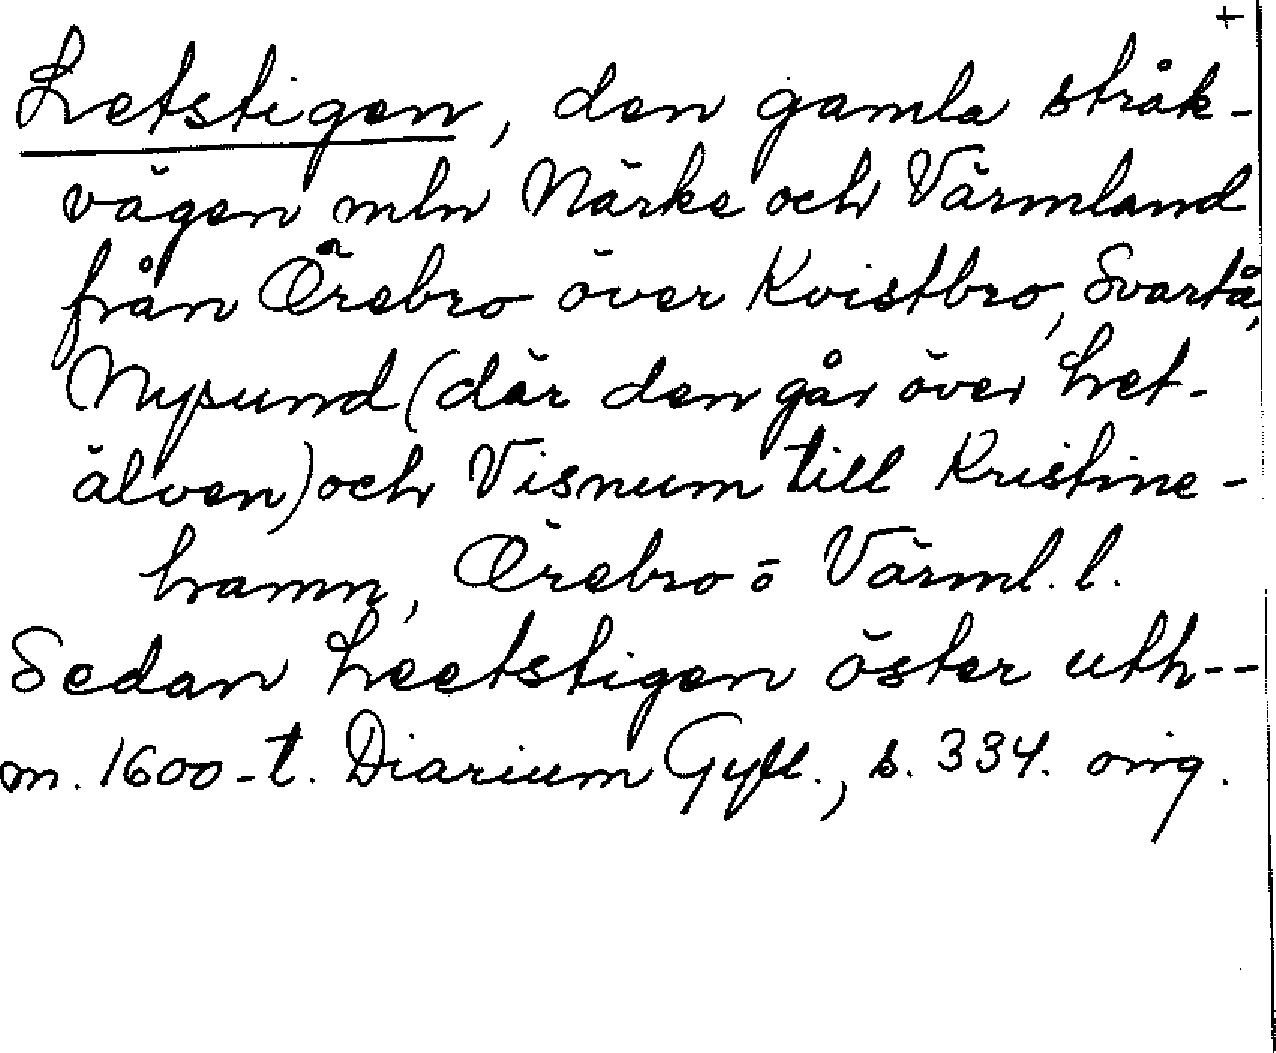 +
Letstigen, den gamla stråk-
vägen mln Närke och Värmland
från Örebro över Kvistbro, Svartå,
Nysund (där den går över Let-
älven) och Visnum till Kristine-
hamn, Örebro o Värml. l.
Sedan Leetstigen öster uth--
m. 1600-t. Diarium Gyll., s. 334. orig.